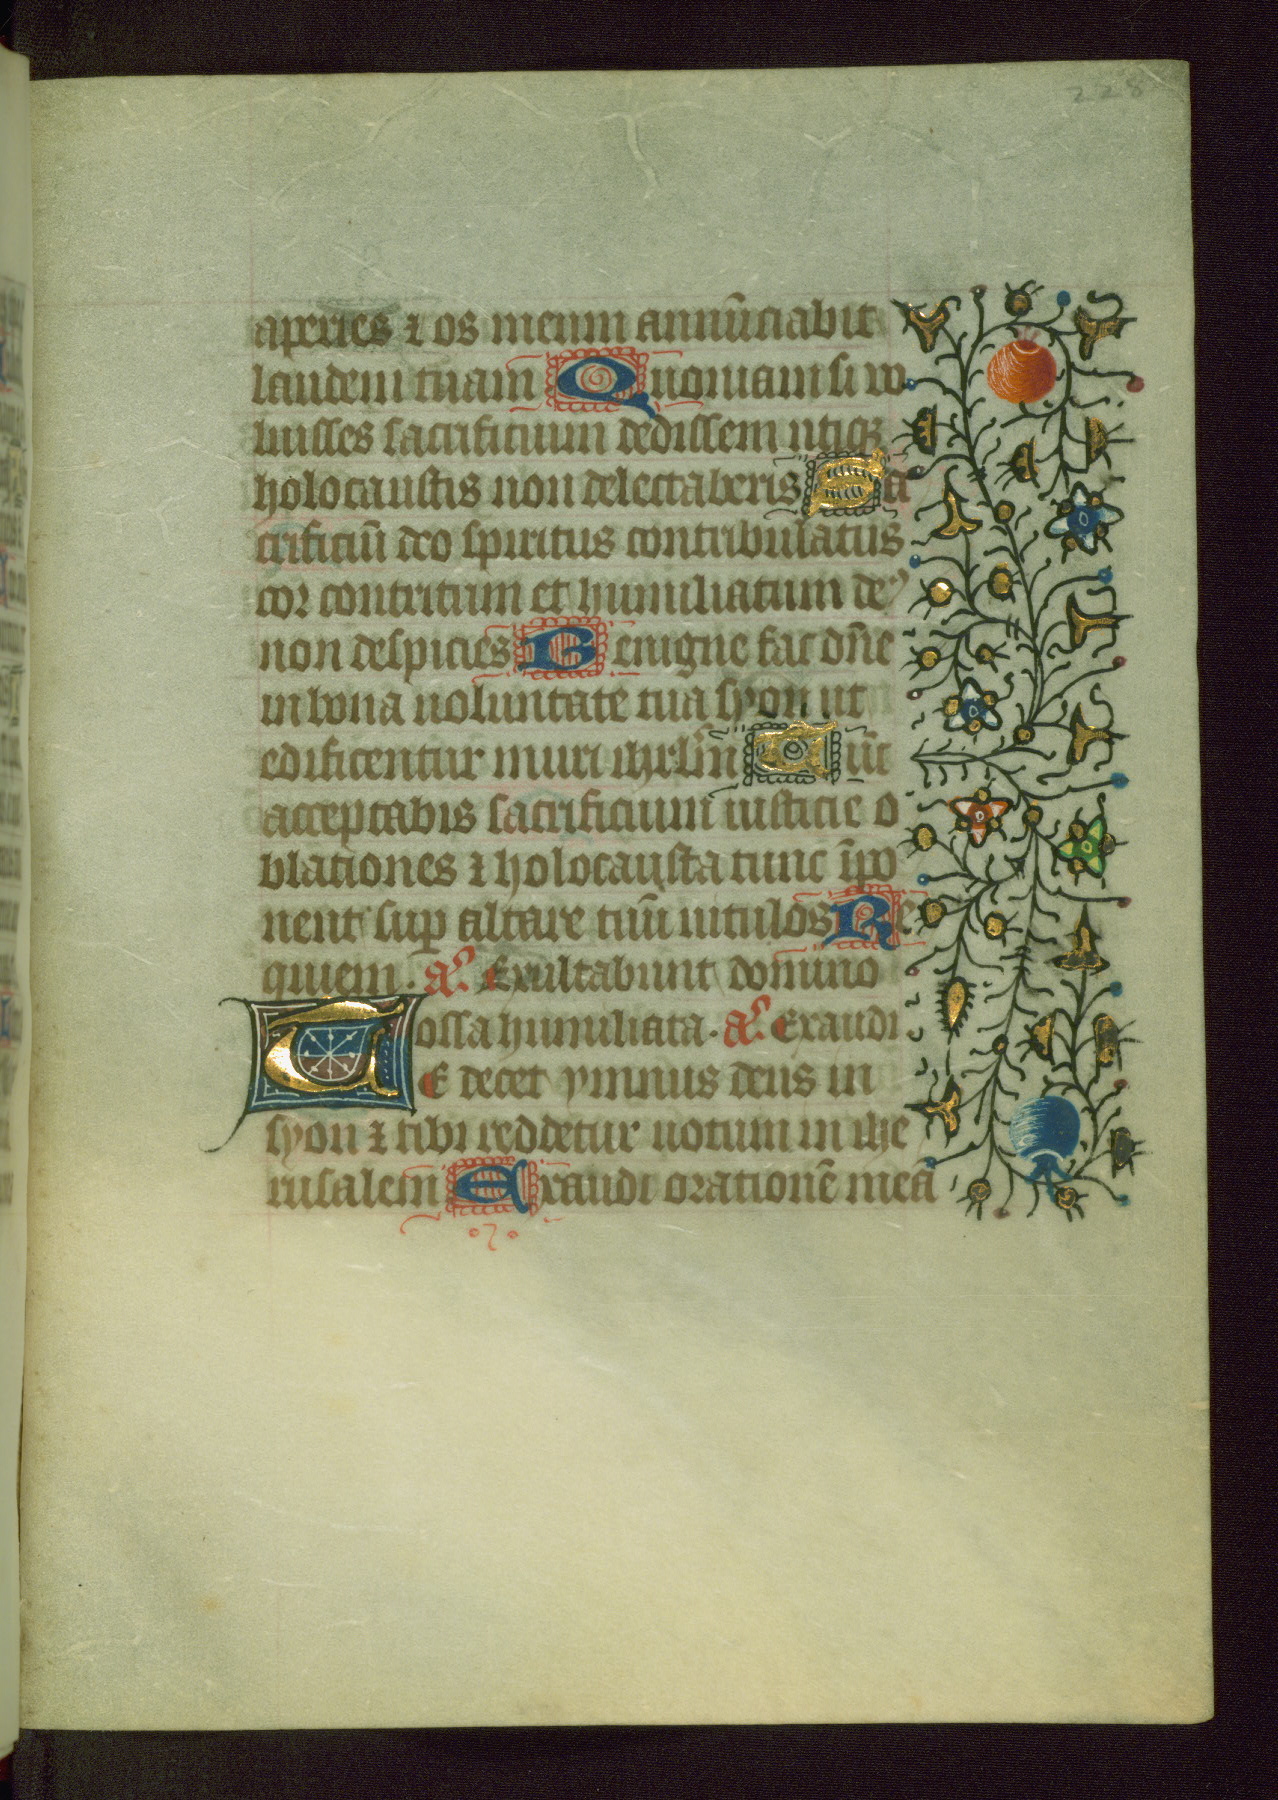 228
aperies ⁊ os meum annūciabit
laudem tuam Quoniam si vo
luisses sacrificium dedissem utiq3
holocaustis non delectaberis Sa
crificiū deo spiritus contribulatus
cor contritum et humiliatum deꝰ
non despicies Benigne fac dn̄e
in bona uoluntate tua syon ut
edificentur muri ihrlm̄ Tūc
acceptabis sacrificium iusticie o
blationes ⁊ holocausta tunc īpo
nent sup altare tuū uitulos Re
quiem. añ. Exultabunt domino
ossa humiliata. añ. Exaudi.
TE decet ymnus deus in
syon ⁊ tibi reddetur uotum in ihe
rusalem Exaudi orationē meā